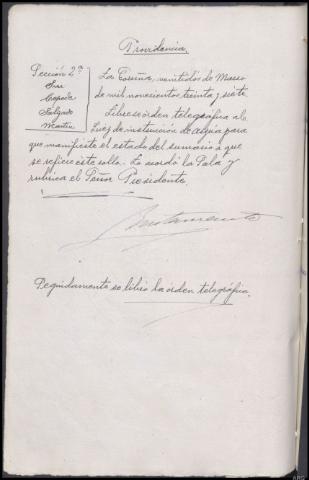 Providencia
Sección 2ª
Sres
Cepeda
Salgado
Martin
La Coruña, veintidos de Marzo
de mil novecientos treinta y siete
Librese orden telegrafica al
Juez de instrucción de para
que manifieste el estado del sumario a que
se refiere este rollo. Lo acordó la Sala y
rubrica el Señor Presidente.
Bustamante
Seguidamente se libró la orden telegráfica.
ARG